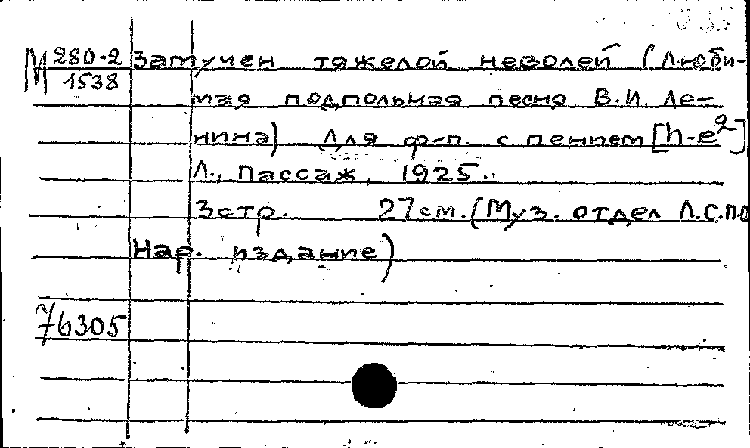 М 280-2 Замучен тяжелой неволей (Люби-
1538
мая подпольная песня В.И. Ле-
нина) Для ф-п. с пением [h-e²]
Л., Пассаж, 1925.
3 стр. 27 см. (Муз. отдел Л.С.П.О
Нар. издание)
76305